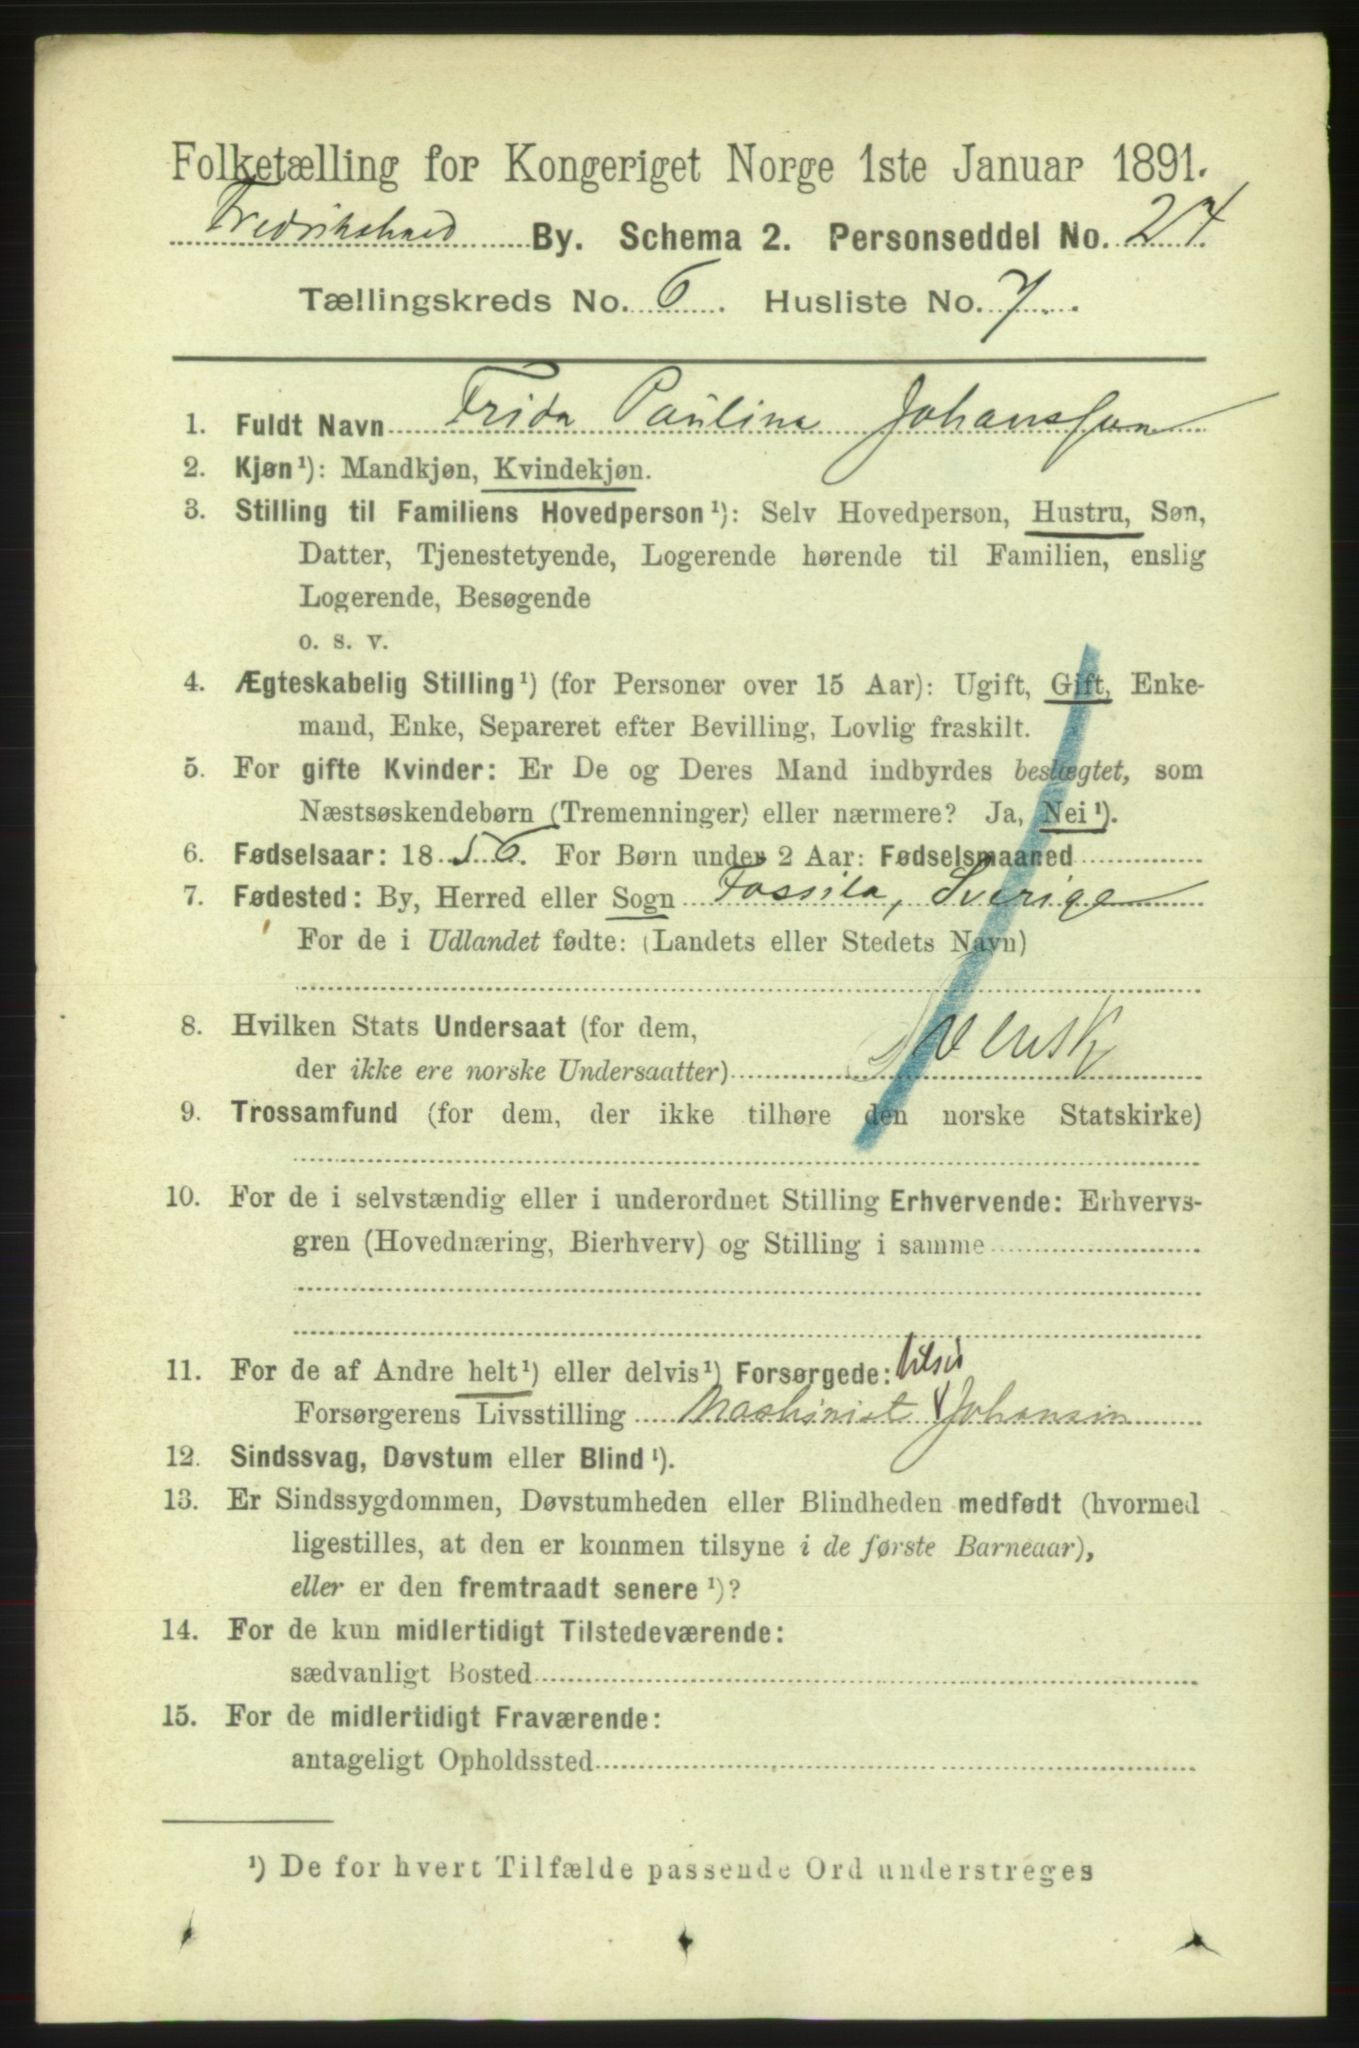 Folketælling for Kongeriget Norge 1ste Januar 1891.
Fredrikshald By. Schema 2. Personseddel No. 27
Tællingskreds No. 6. Husliste No. 7.
1. Fuldt Navn Frida Paulina Johansson
2. Kjøn¹): Mandkjøn, Kvindekjøn.
3. Stilling til Familiens Hovedperson¹): Selv Hovedperson, Hustru, Søn,
Datter, Tjenestetyende, Logerende hørende til Familien, enslig
Logerende, Besøgende
o. s. v.
4. Ægteskabelig Stilling¹) (for Personer over 15 Aar): Ugift, Gift, Enke-
mand, Enke, Separeret efter Bevilling, Lovlig fraskilt.
5. For gifte Kvinder: Er De og Deres Mand indbyrdes beslægtet, som
Næstsøskendebørn (Tremenninger) eller nærmere? Ja, Nei¹).
6. Fødselsaar: 1856. For Børn under 2 Aar: Fødselsmaaned
7. Fødested: By, Herred eller Sogn Fossila, Sverige
For de i Udlandet fødte: (Landets eller Stedets Navn)
8. Hvilken Stats Undersaat (for dem,
der ikke ere norske Undersaatter) Svensk
9. Trossamfund (for dem, der ikke tilhøre den norske Statskirke)
10. For de i selvstændig eller i underordnet Stilling Erhvervende: Erhvervs-
gren (Hovednæring, Bierhverv) og Stilling i samme
11. For de af Andre helt¹) eller delvis¹) Forsørgede:
Forsørgerens Livsstilling Maskinist Johansin
12. Sindssvag, Døvstum eller Blind¹).
13. Er Sindssygdommen, Døvstumheden eller Blindheden medfødt (hvormed
ligestilles, at den er kommen tilsyne i de første Barneaar),
eller er den fremtraadt senere¹)?
14. For de kun midlertidigt Tilstedeværende:
sædvanligt Bosted
15. For de midlertidigt Fraværende:
antageligt Opholdssted
¹) De for hvert Tilfælde passende Ord understreges